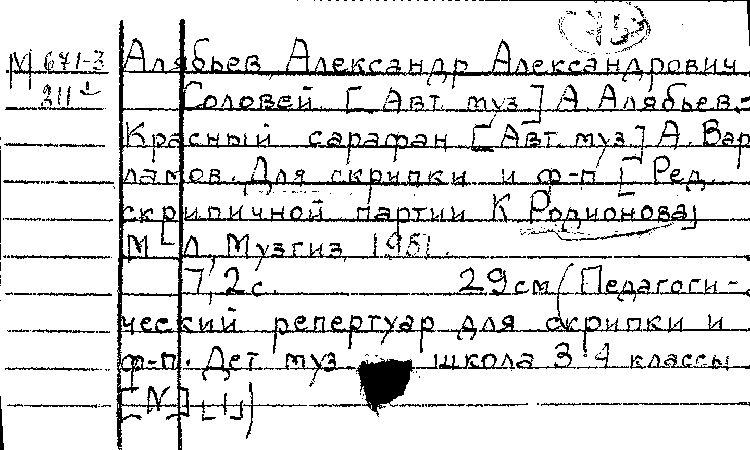 М 671-3
211
Алябьев, Александр Александрович
Соловей [Авт. муз.] А. Алябьев.-
Красный сарафан [Авт. муз.] А. Вар
ламов. Для скрипки и ф-п [Ред.
скрипичной партии К. Родионова]
М-Л, Музгиз, 1951.
7, 2 с. 29 см (Педагоги-
ческий репертуар для скрипки и
ф-п. Дет муз школа 3-4 классы
[N] [1])